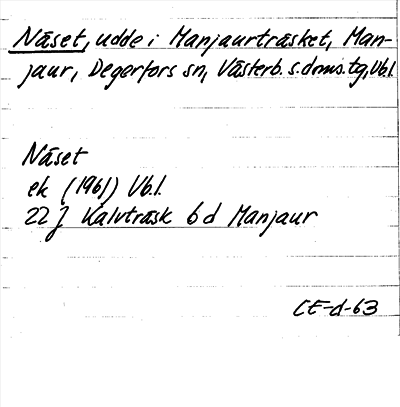 Näset, udde i Manjaurträsket, Man-
jaur, Degerfors sn, Västerb. s. doms. tg, Vb.l.
Näset
ek (1961) Vb.l.
22 J Kalvträsk 6 d Manjaur
CE-d-63